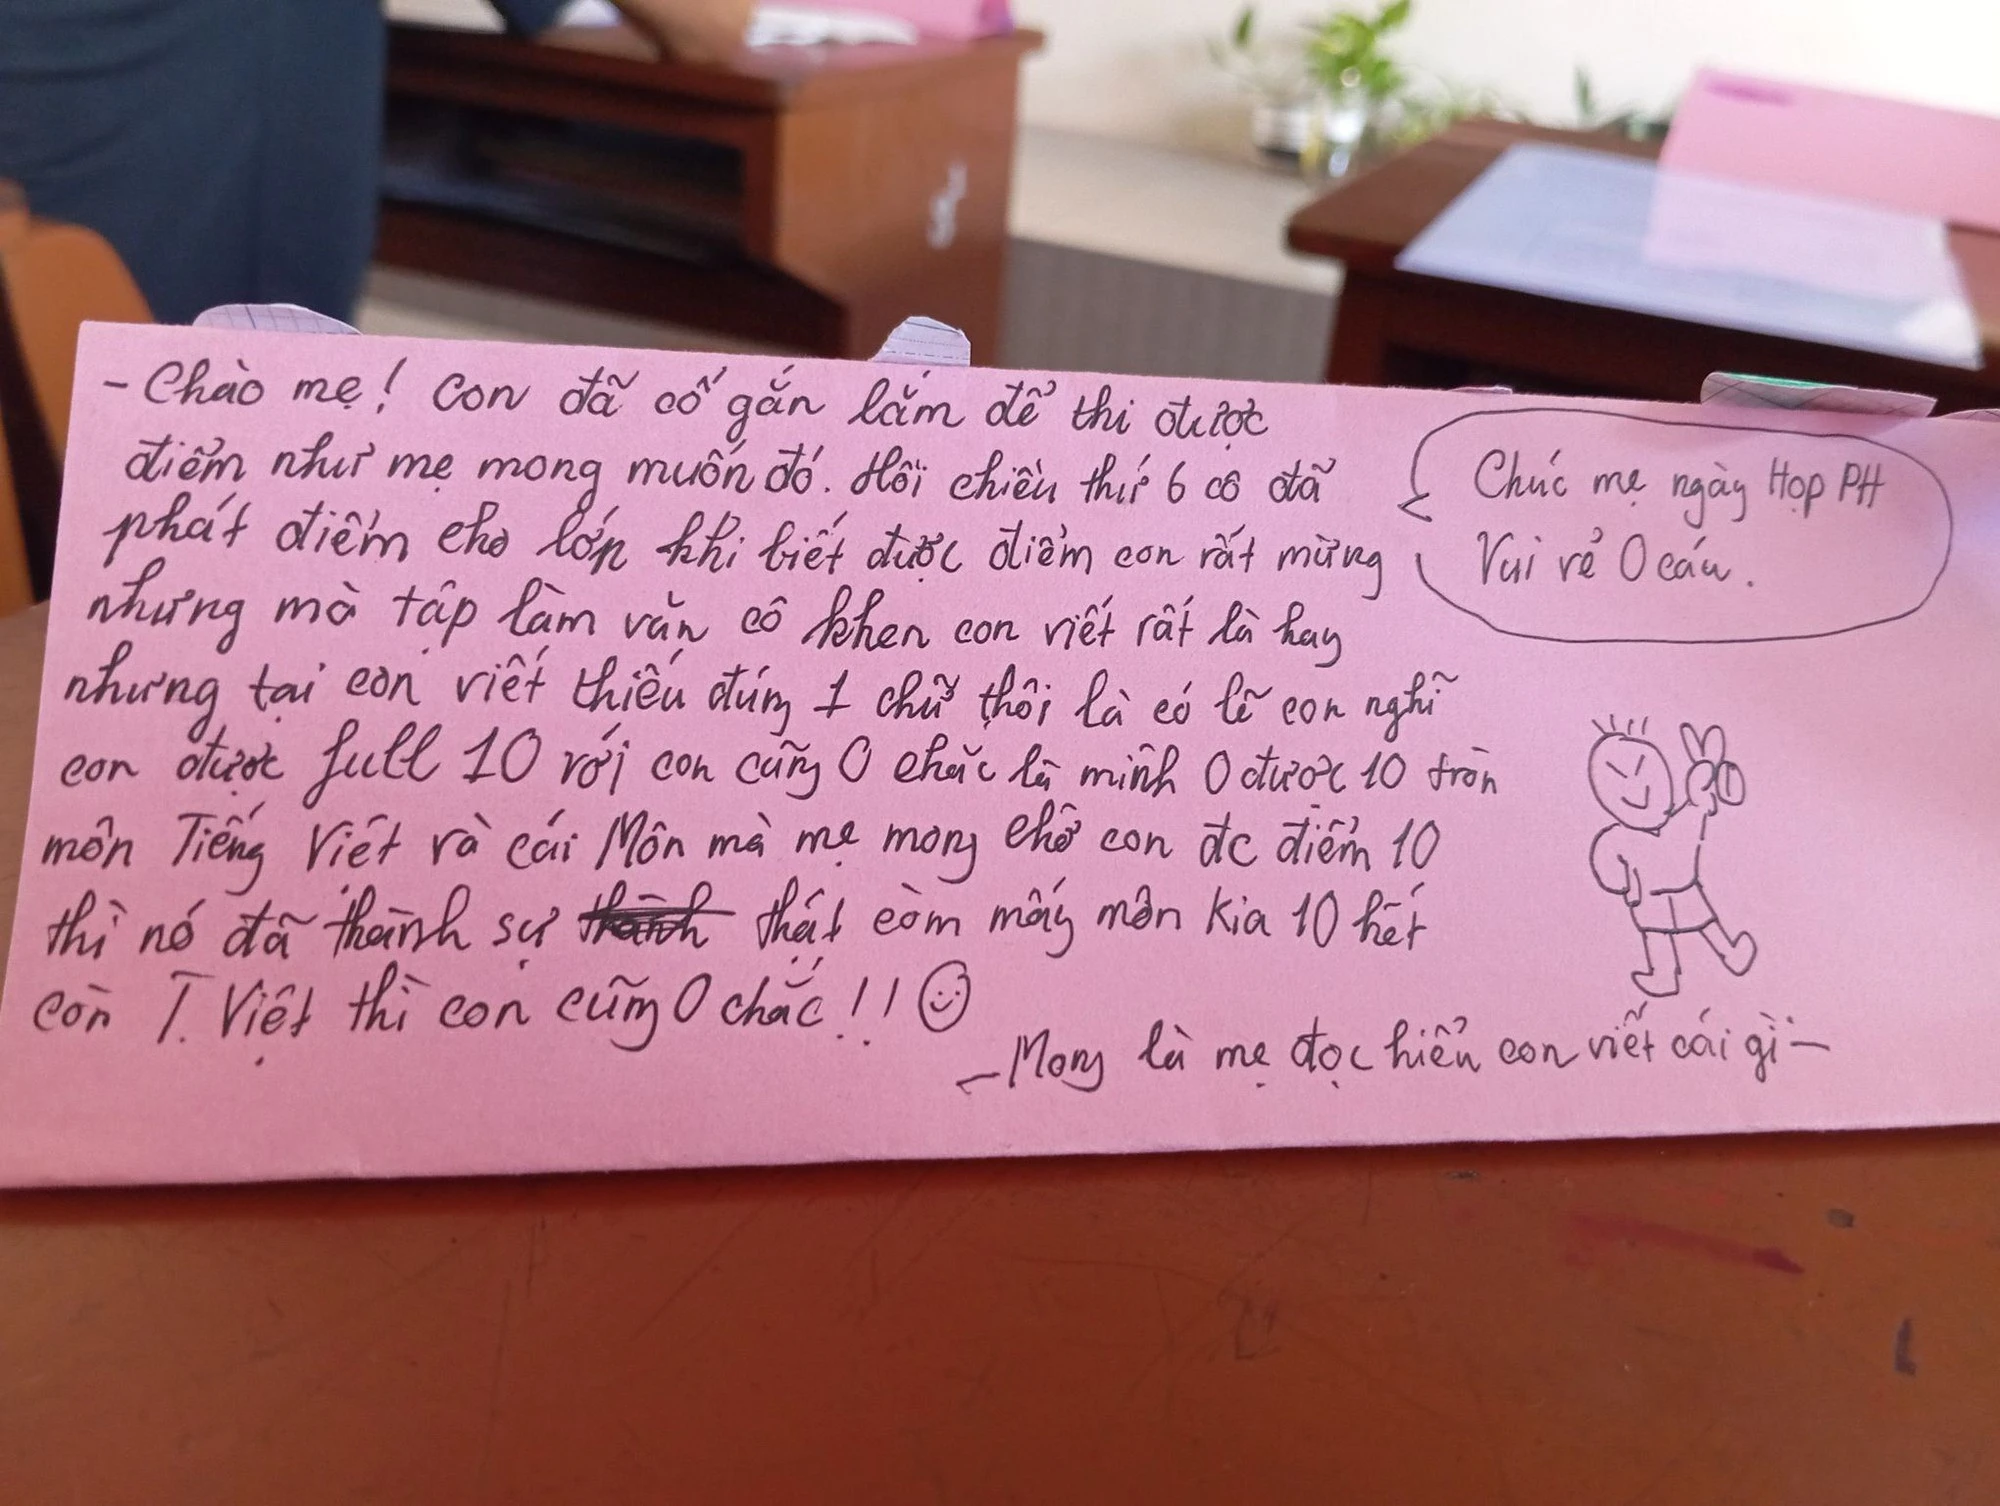 - Chào mẹ! Con đã cố gắn lắm để thi được
điểm như mẹ mong muốn đó. Hồi chiều thứ 6 cô đã
phát điểm cho lớp khi biết được điểm con rất mừng
nhưng mà tập làm văn cô khen con viết rất là hay
nhưng tại con viết thiếu đúng 1 chữ thôi là có lẽ con nghĩ
con được full 10 rồi con cũng 0 chắc là mình 0 được 10 tròn
môn Tiếng Việt và cái Môn mà mẹ mong chờ con đc điểm 10
thì nó đã thành sự thật còm mấy môn kia 10 hết
còn T. Việt thì con cũng 0 chắc!!
- Mong là mẹ đọc hiểu con viết cái gì -
Chúc mẹ ngày Họp PH
Vui vẻ 0 cáu.